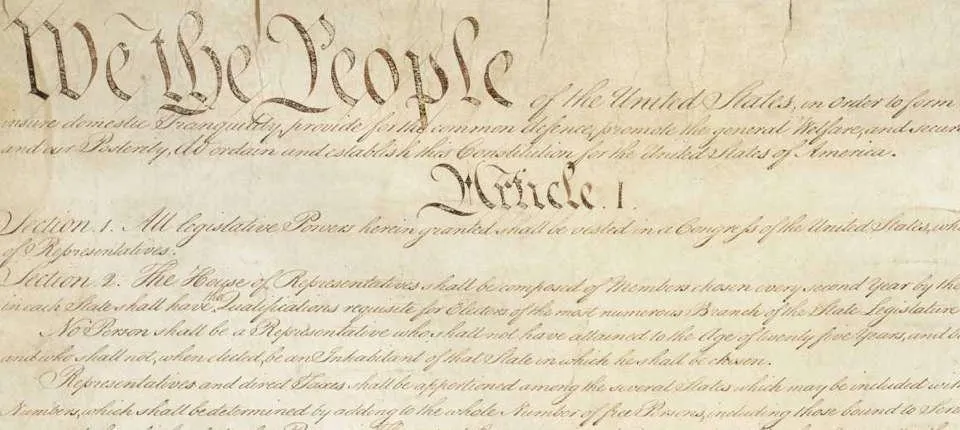 We the People of the United States, in Order to form
insure domestic Tranquility, provide for the common defence, promote the general Welfare, and secure
and our Posterity, do ordain and establish this Constitution for the United States of America.
Article. I.
Section. 1. All legislative Powers herein granted shall be vested in a Congress of the United States, wh
of Representatives.
Section. 2. The House of Representatives shall be composed of Members chosen every second Year by the
in each State shall have the Qualifications requisite for Electors of the most numerous Branch of the State Legislature
No Person shall be a Representative who shall not have attained to the Age of twenty five Years, and
and who shall not, when elected, be an Inhabitant of that State in which he shall be chosen.
Representatives and direct Taxes shall be apportioned among the several States which may be included with
Numbers, which shall be determined by adding to the whole Number of free Persons, including those bound to Ser